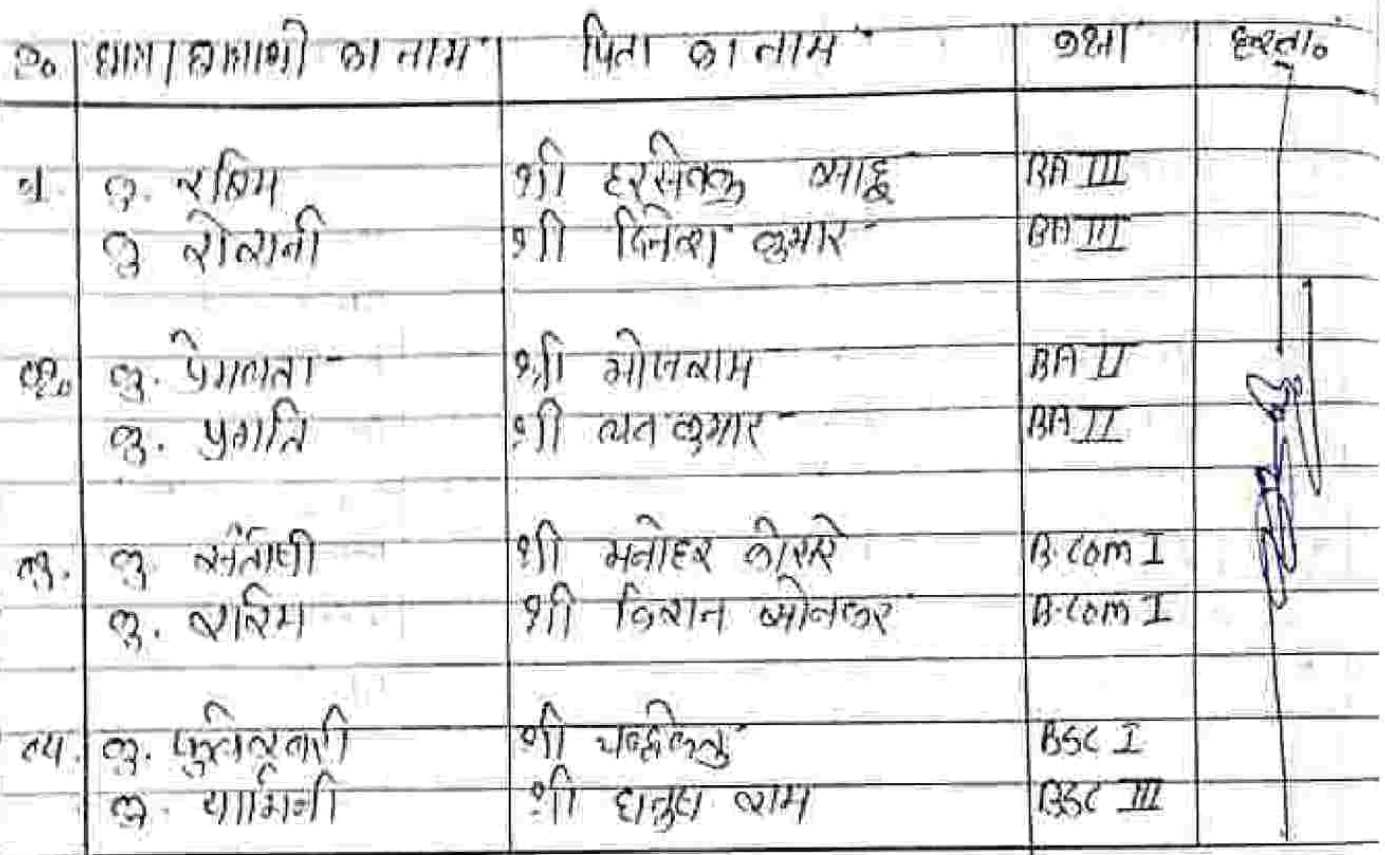 छात्र/छात्राओं का नाम पिता का नाम कक्षा हस्ता०
कु. रश्मि श्री हरसेवक साहू BA III
कु रोशनी श्री दिनेश कुमार BA III
कु. प्रेमलता श्री भोजराम BA II
कु. प्रगति श्री कुमार BA II
कु. संतोषी श्री मनोहर कोसरे B.COM I
कु. रश्मि श्री किशन सोनकर B.COM I
कु. फुलेश्वरी श्री BSC I
कु. यामिनी श्री धनुष राम BSC III